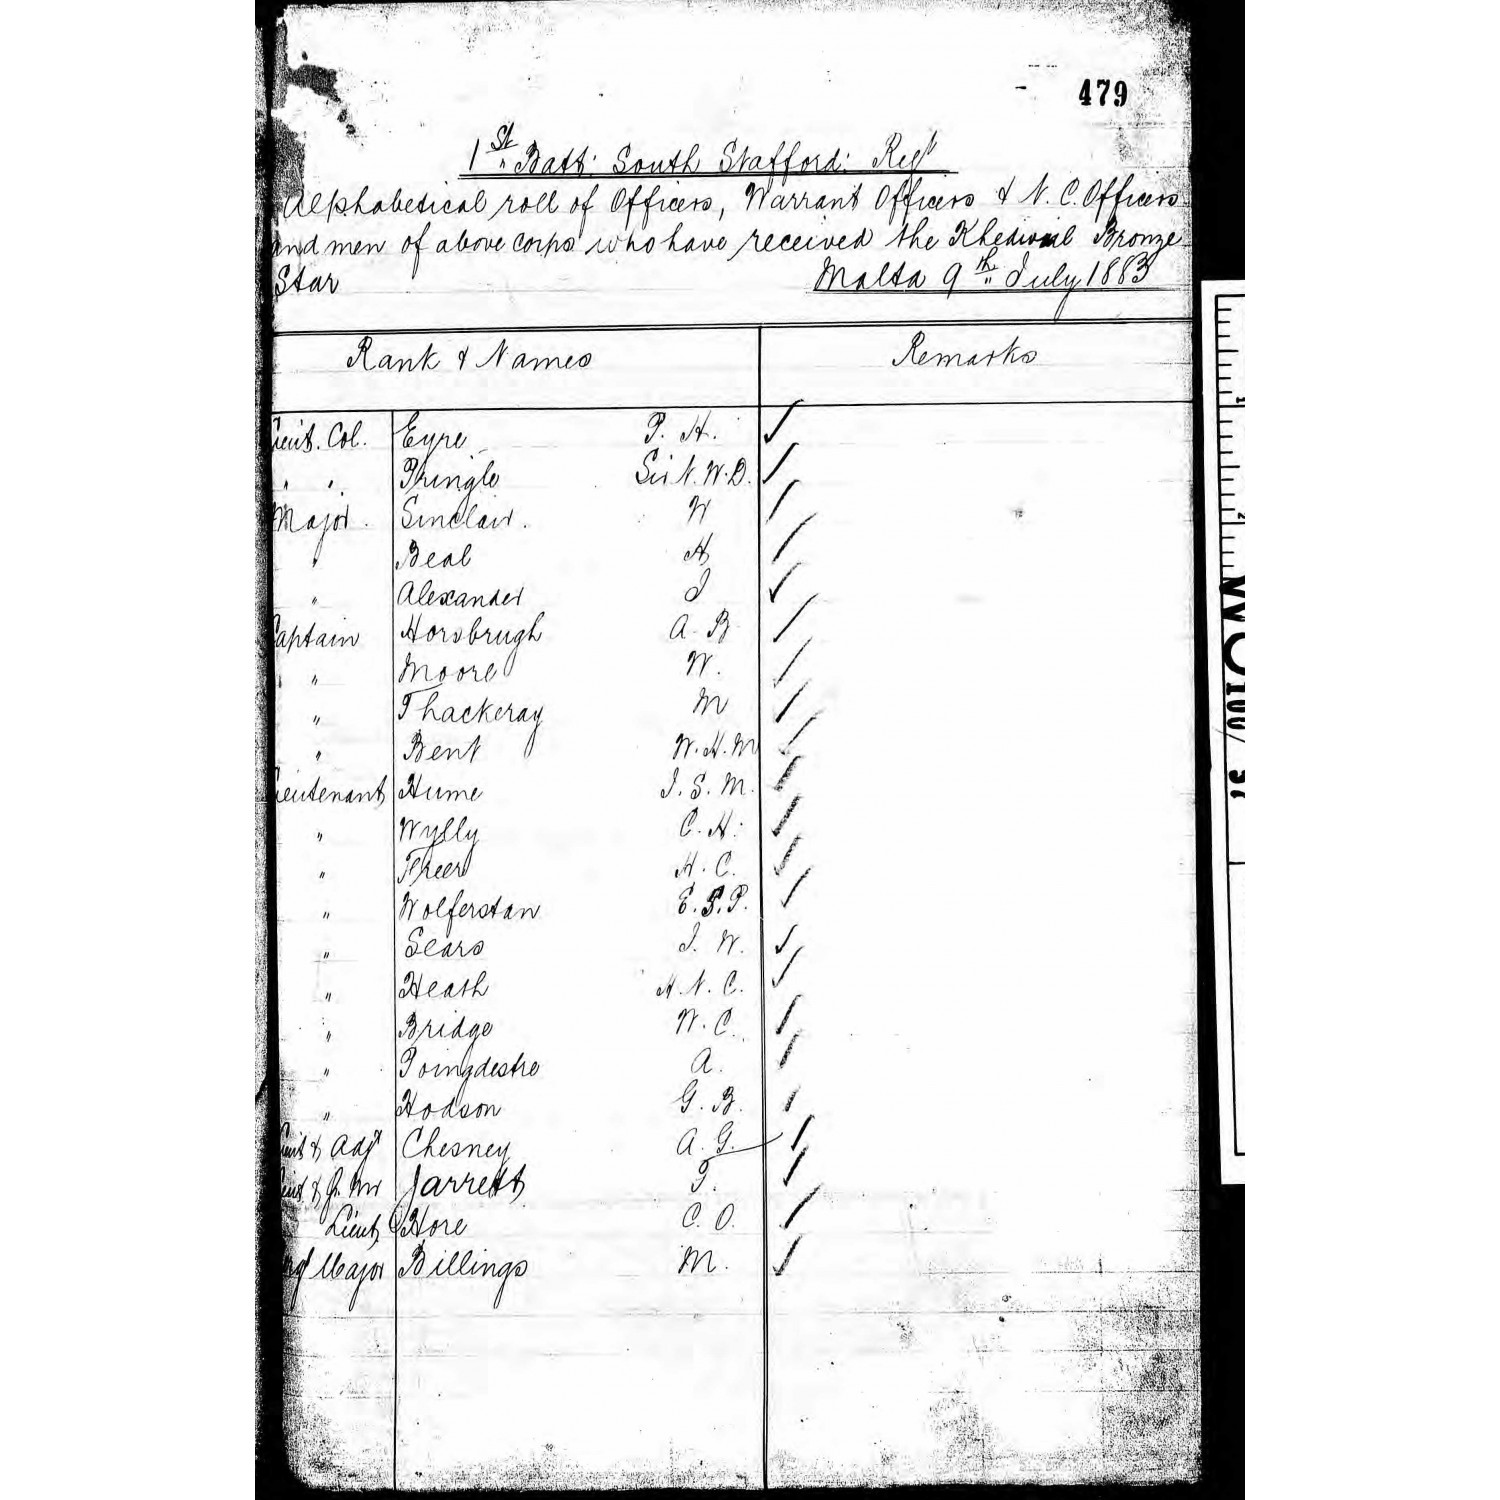 479
1st Batt: South Stafford: Regt
Alphabetical roll of Officers, Warrant Officers & N. C. Officers
and men of above corps who have received the Khedivial Bronze
Star Malta 9th July 1883
Rank & Names Remarks
Lieut. Col. Eyre P. H. ✓
" " Pringle Sir N. W. D. ✓
Major Sinclair W ✓
" Beal H ✓
" Alexander J ✓
Captain Horsbrugh A. B ✓
" Moore W. ✓
" Thackeray M ✓
" Bent W. H. M ✓
Lieutenant Hume J. S. M. ✓
" Wylly C. H. ✓
" Freer H. C. ✓
" Wolferstan E. S. P. ✓
" Sears J. W. ✓
" Heath H. N. C. ✓
" Bridge W. C. ✓
" Poingdestre A. ✓
" Hodson G. B. ✓
Lieut & Adjt Chesney A. G. ✓
Lieut & Qr. Mr Jarrett T. ✓
Lieut Hore C. O. ✓
Major Billings M. ✓
WO 100/